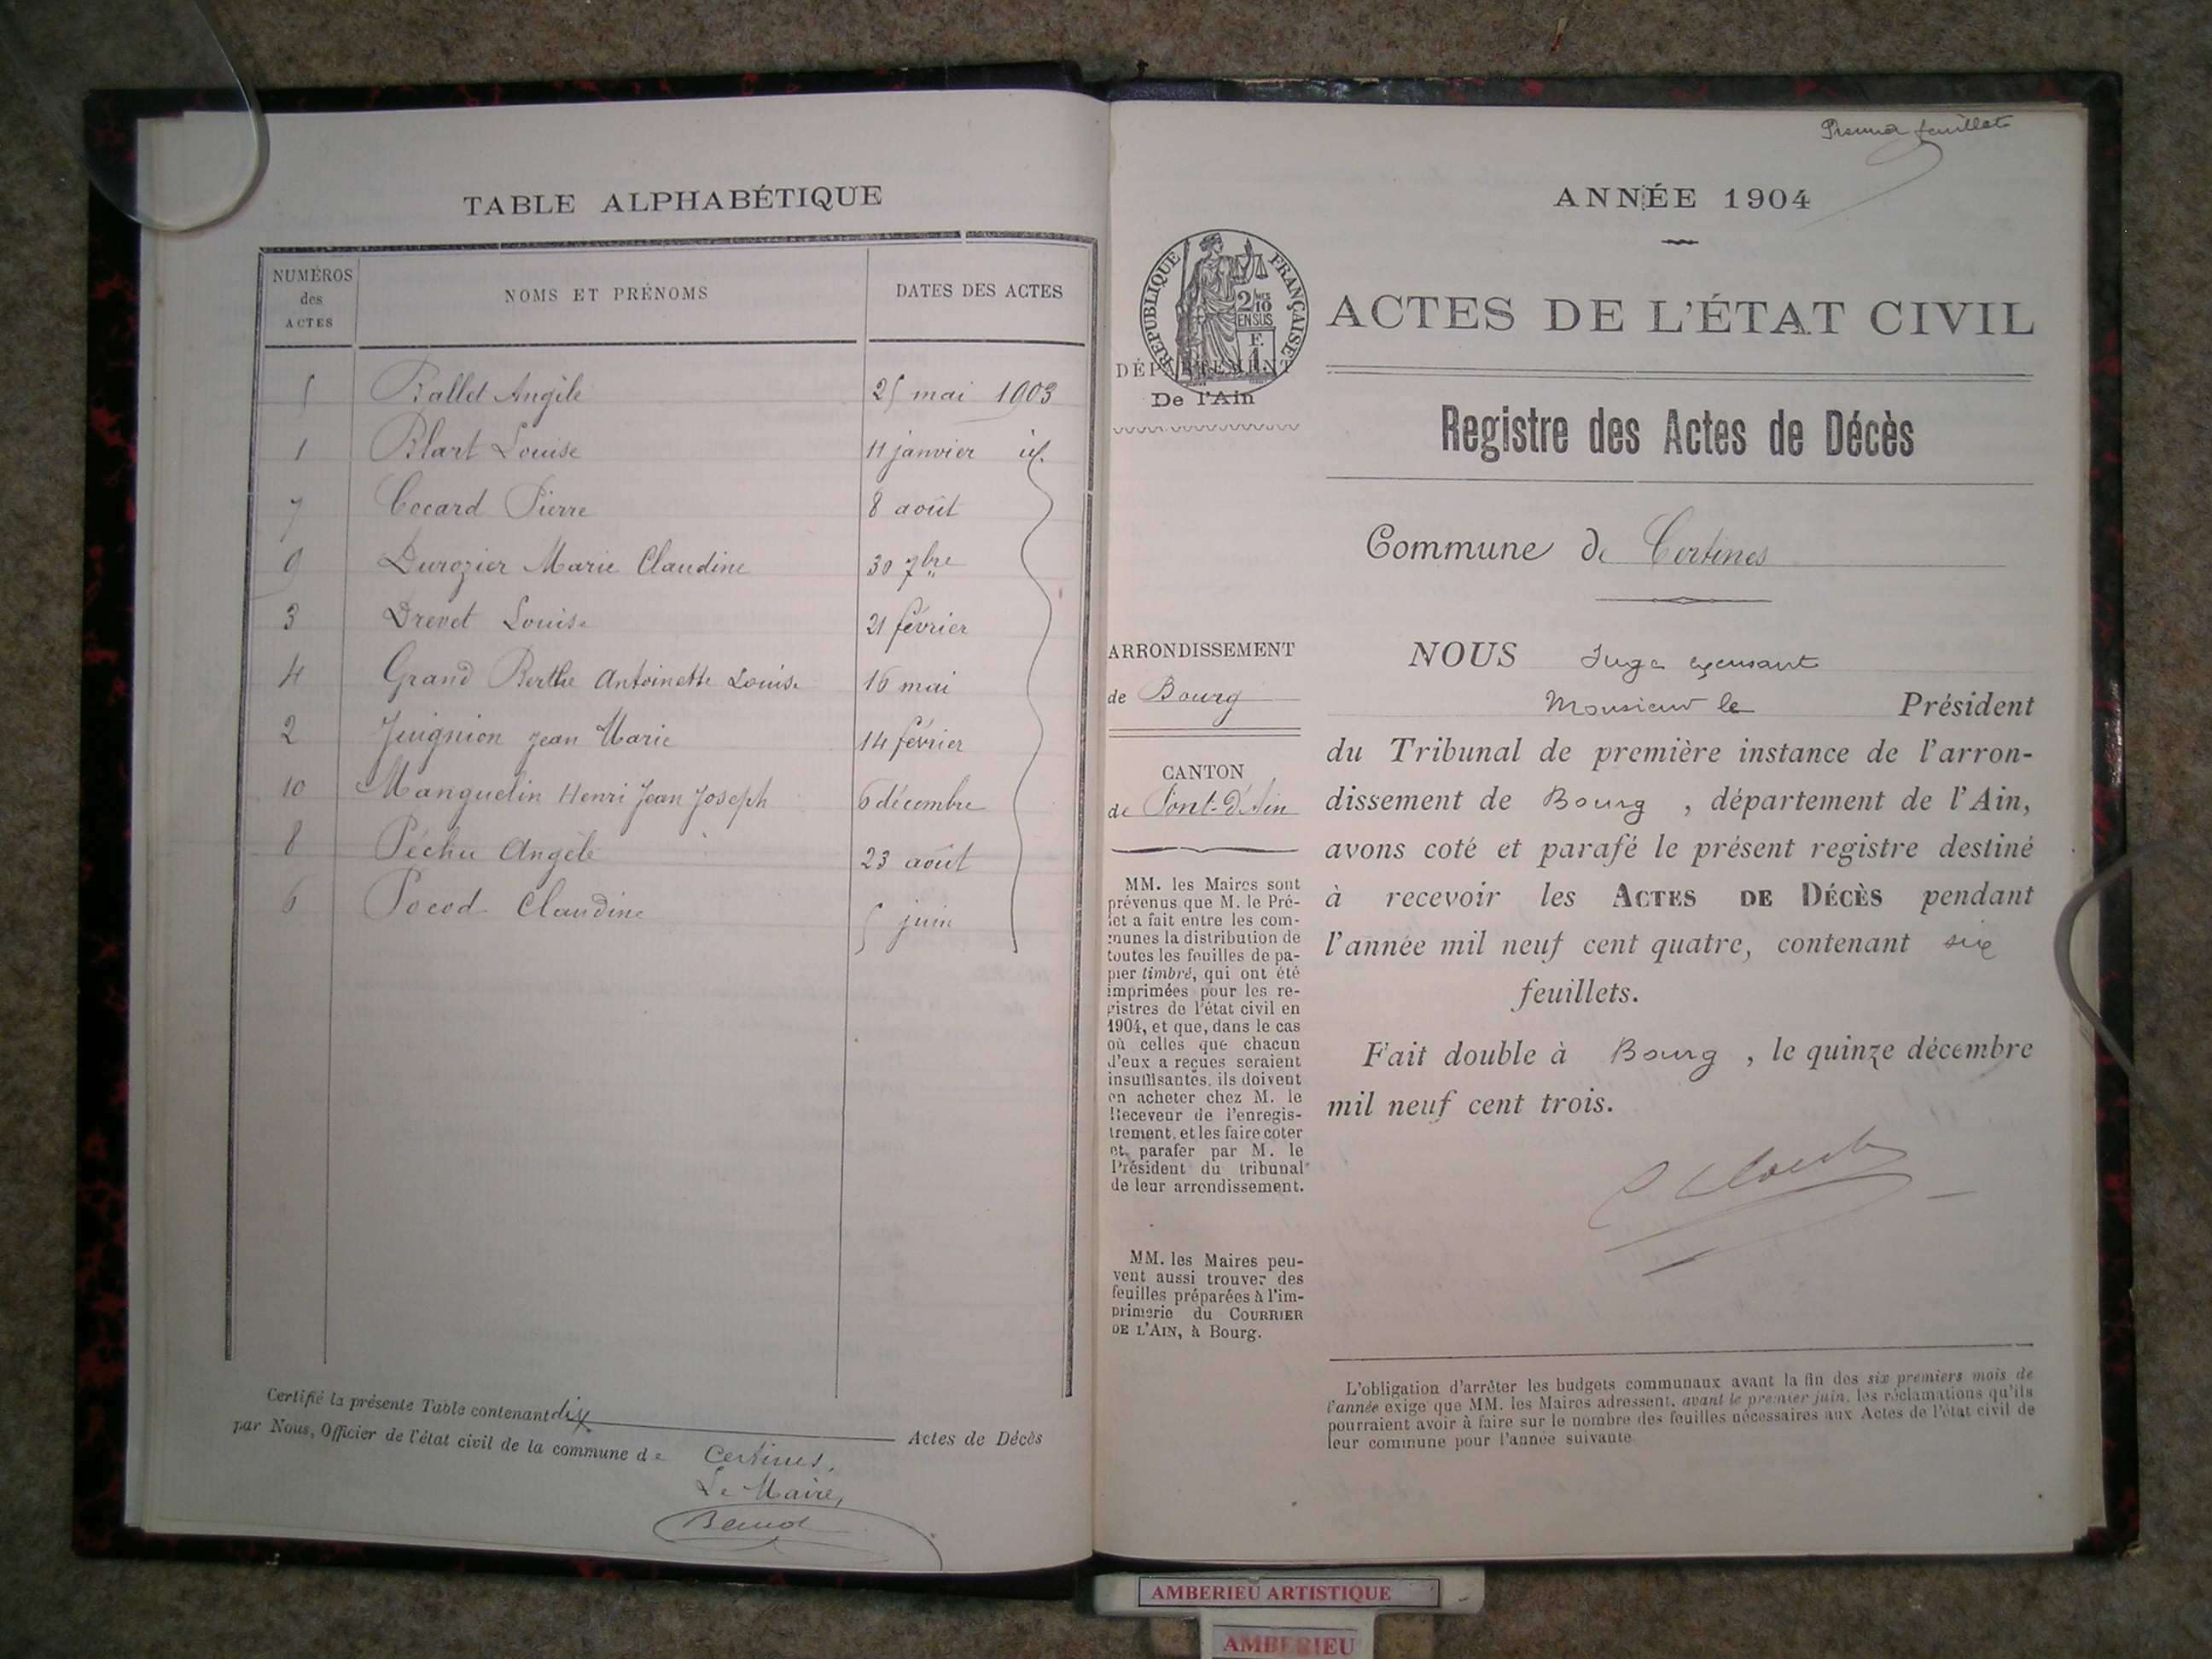 TABLE ALPHABÉTIQUE
NUMÉROS des ACTES NOMS ET PRÉNOMS DATES DES ACTES
5 Ballet Angèle 25 mai 1903
1 Blart Louise 11 janvier id.
7 Cocard Pierre 8 août
9 Durozier Marie Claudine 30 7bre
3 Drevet Louise 21 février
4 Grand Berthe Antoinette Louise 16 mai
2 Juignion Jean Marie 14 février
10 Manguelin Henri Jean Joseph 6 décembre
8 Péchu Angèle 23 août
6 Pocod Claudine 5 juin
Certifié la présente Table contenant dix Actes de Décès
par Nous, Officier de l'état civil de la commune de Certines,
Le Maire,
Premier feuillet
ANNÉE 1904
RÉPUBLIQUE FRANÇAISE
2/10 EN SUS
F. 1
DÉPARTEMENT
De l'Ain
ARRONDISSEMENT
de Bourg
CANTON
de Pont-d'Ain
MM. les Maires sont
prévenus que M. le Pré-
fet a fait entre les com-
munes la distribution de
toutes les feuilles de pa-
pier timbré, qui ont été
imprimées pour les re-
gistres de l'état civil en
1904, et que, dans le cas
où celles que chacun
d'eux a reçues seraient
insuffisantes, ils doivent
en acheter chez M. le
Receveur de l'enregis-
trement, et les faire coter
et parafer par M. le
Président du tribunal
de leur arrondissement.
MM. les Maires peu-
vent aussi trouver des
feuilles préparées à l'im-
primerie du COURRIER
DE L'AIN, à Bourg.
ACTES DE L'ÉTAT CIVIL
Registre des Actes de Décès
Commune de Certines
NOUS Juge exerçant
Monsieur le Président
du Tribunal de première instance de l'arron-
dissement de Bourg , département de l'Ain,
avons coté et parafé le présent registre destiné
à recevoir les ACTES DE DÉCÈS pendant
l'année mil neuf cent quatre, contenant six
feuillets.
Fait double à Bourg , le quinze décembre
mil neuf cent trois.
L'obligation d'arrêter les budgets communaux avant la fin des six premiers mois de
l'année exige que MM. les Maires adressent, avant le premier juin, les réclamations qu'ils
pourraient avoir à faire sur le nombre des feuilles nécessaires aux Actes de l'état civil de
leur commune pour l'année suivante
AMBERIEU ARTISTIQUE
AMBERIEU